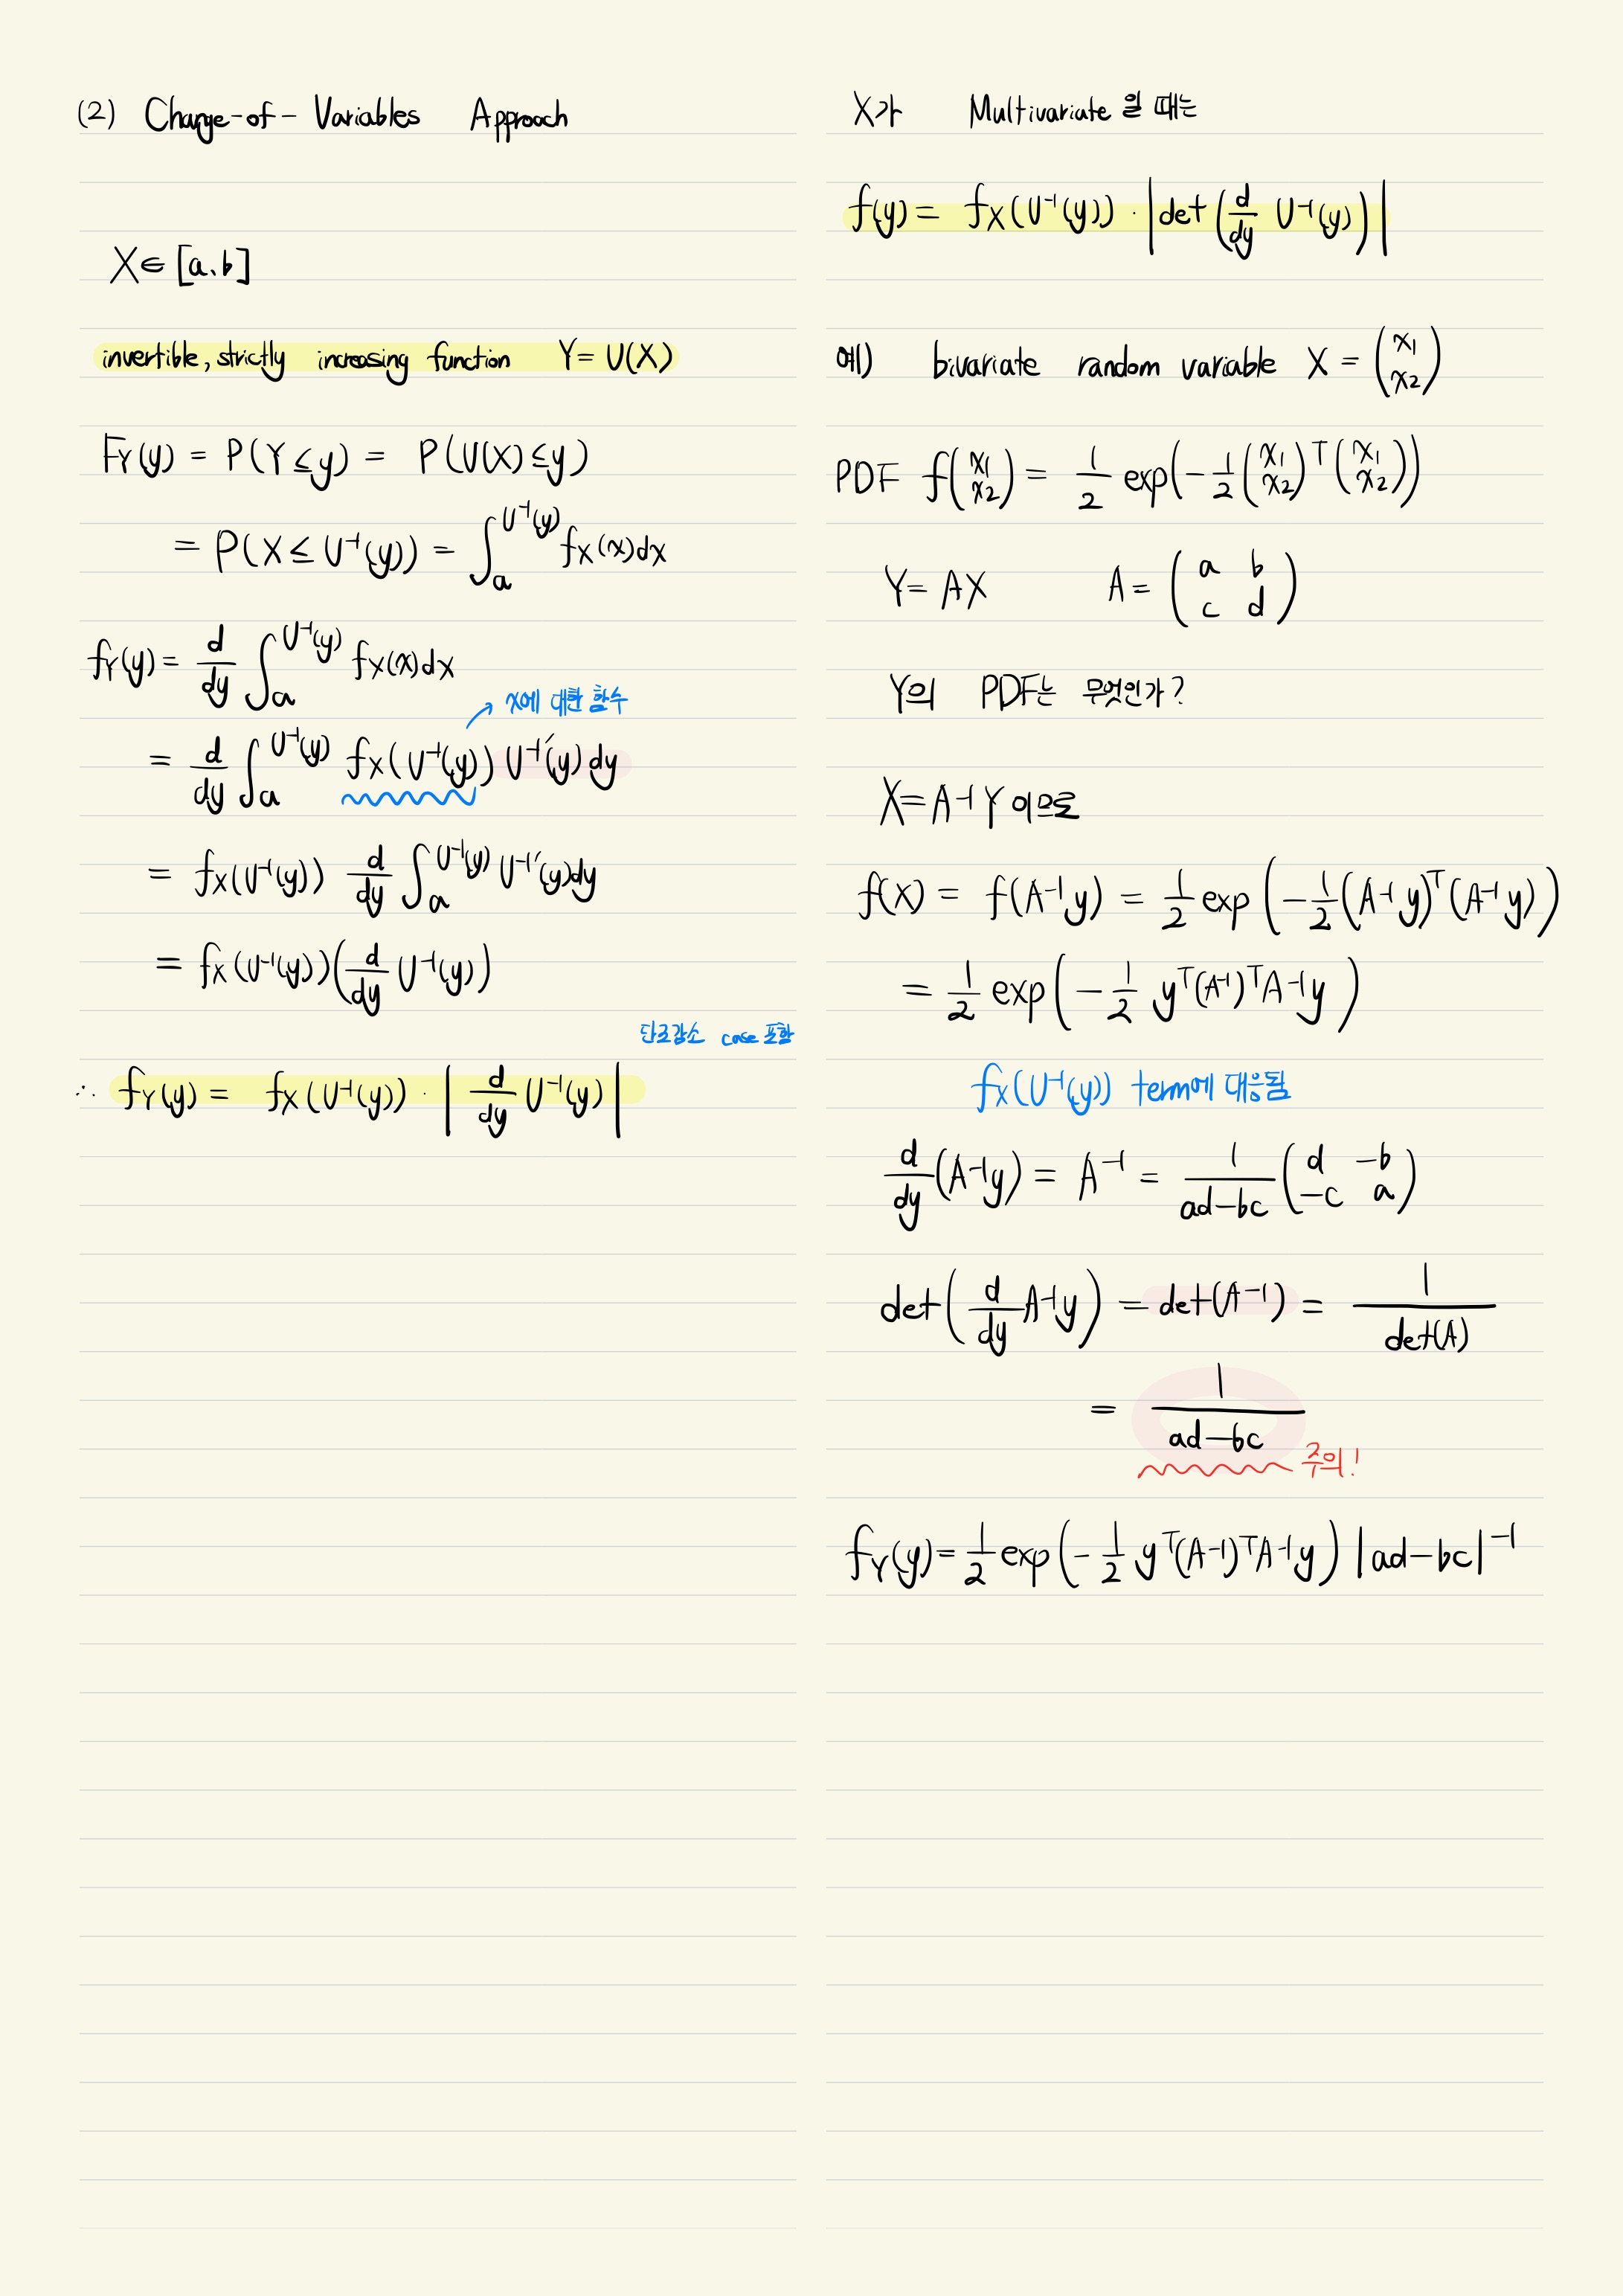 (2) Change-of-Variables Approach
X∈[a.b]
invertible, strictly increasing function Y=U(X)
F_Y(y) = P(Y≤y) = P(U(X)≤y)
= P(X≤U⁻¹(y)) = ∫_a^{U⁻¹(y)} f_X(x)dx
f_Y(y) = d/dy ∫_a^{U⁻¹(y)} f_X(x)dx
x에 대한 함수
= d/dy ∫_a^{U⁻¹(y)} f_X(U⁻¹(y)) U⁻¹′(y)dy
= f_X(U⁻¹(y)) d/dy ∫_a^{U⁻¹(y)} U⁻¹′(y)dy
= f_X(U⁻¹(y))(d/dy U⁻¹(y))
단조감소 case 포함
∴ f_Y(y) = f_X(U⁻¹(y)) · | d/dy U⁻¹(y) |
X가 Multivariate 일 때는
f(y) = f_X(U⁻¹(y)) · |det(d/dy U⁻¹(y))|
예) bivariate random variable X = (x₁ x₂)
PDF f(x₁ x₂) = 1/2 exp(-1/2 (x₁ x₂)ᵀ(x₁ x₂))
Y=AX A= (a b
c d)
Y의 PDF는 무엇인가?
X=A⁻¹Y 이므로
f(X) = f(A⁻¹y) = 1/2 exp(-1/2 (A⁻¹y)ᵀ(A⁻¹y))
= 1/2 exp(-1/2 yᵀ(A⁻¹)ᵀA⁻¹y)
f_X(U⁻¹(y)) term에 대응됨
d/dy (A⁻¹y) = A⁻¹ = 1/(ad-bc) (d -b
-c a)
det(d/dy A⁻¹y) = det(A⁻¹) = 1/det(A)
= 1/(ad-bc)
주의!
f_Y(y) = 1/2 exp(-1/2 yᵀ(A⁻¹)ᵀA⁻¹y) |ad-bc|⁻¹